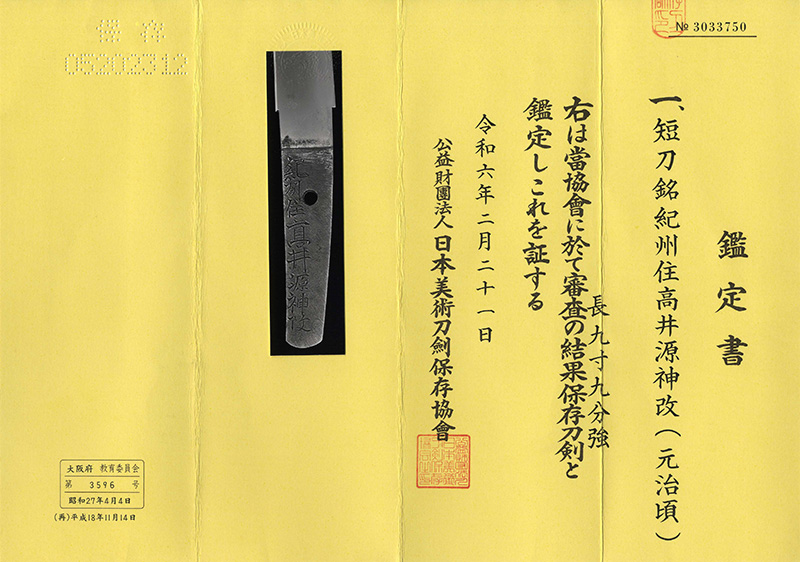 № 3033750
鑑定書
一、短刀銘紀州住高井源神改(元治頃)
長九寸九分強
右は當協會に於て審査の結果保存刀剣と
鑑定しこれを証する
令和六年二月二十一日
公益財團法人日本美術刀劍保存協會
紀州住高井源神改
保存
05202312
大阪府 教育委員会
第 3596 号
昭和27年4月4日
(再)平成18年11月14日